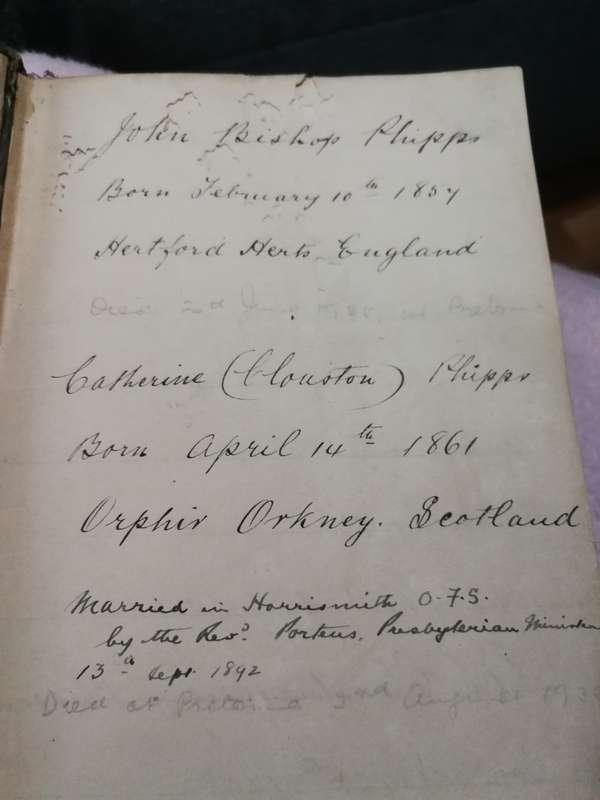 John Bishop Phipps
Born February 10th 1857
Hertford Herts England
Died 2nd June at
Catherine (Clouston) Phipps
Born April 14th 1861
Orphir Orkney. Scotland
Married in Harrismith O.F.S.
by the Revd. Porteus, Presbyterian Minister
13th Sept 1892
Died at Pretoria 2nd August